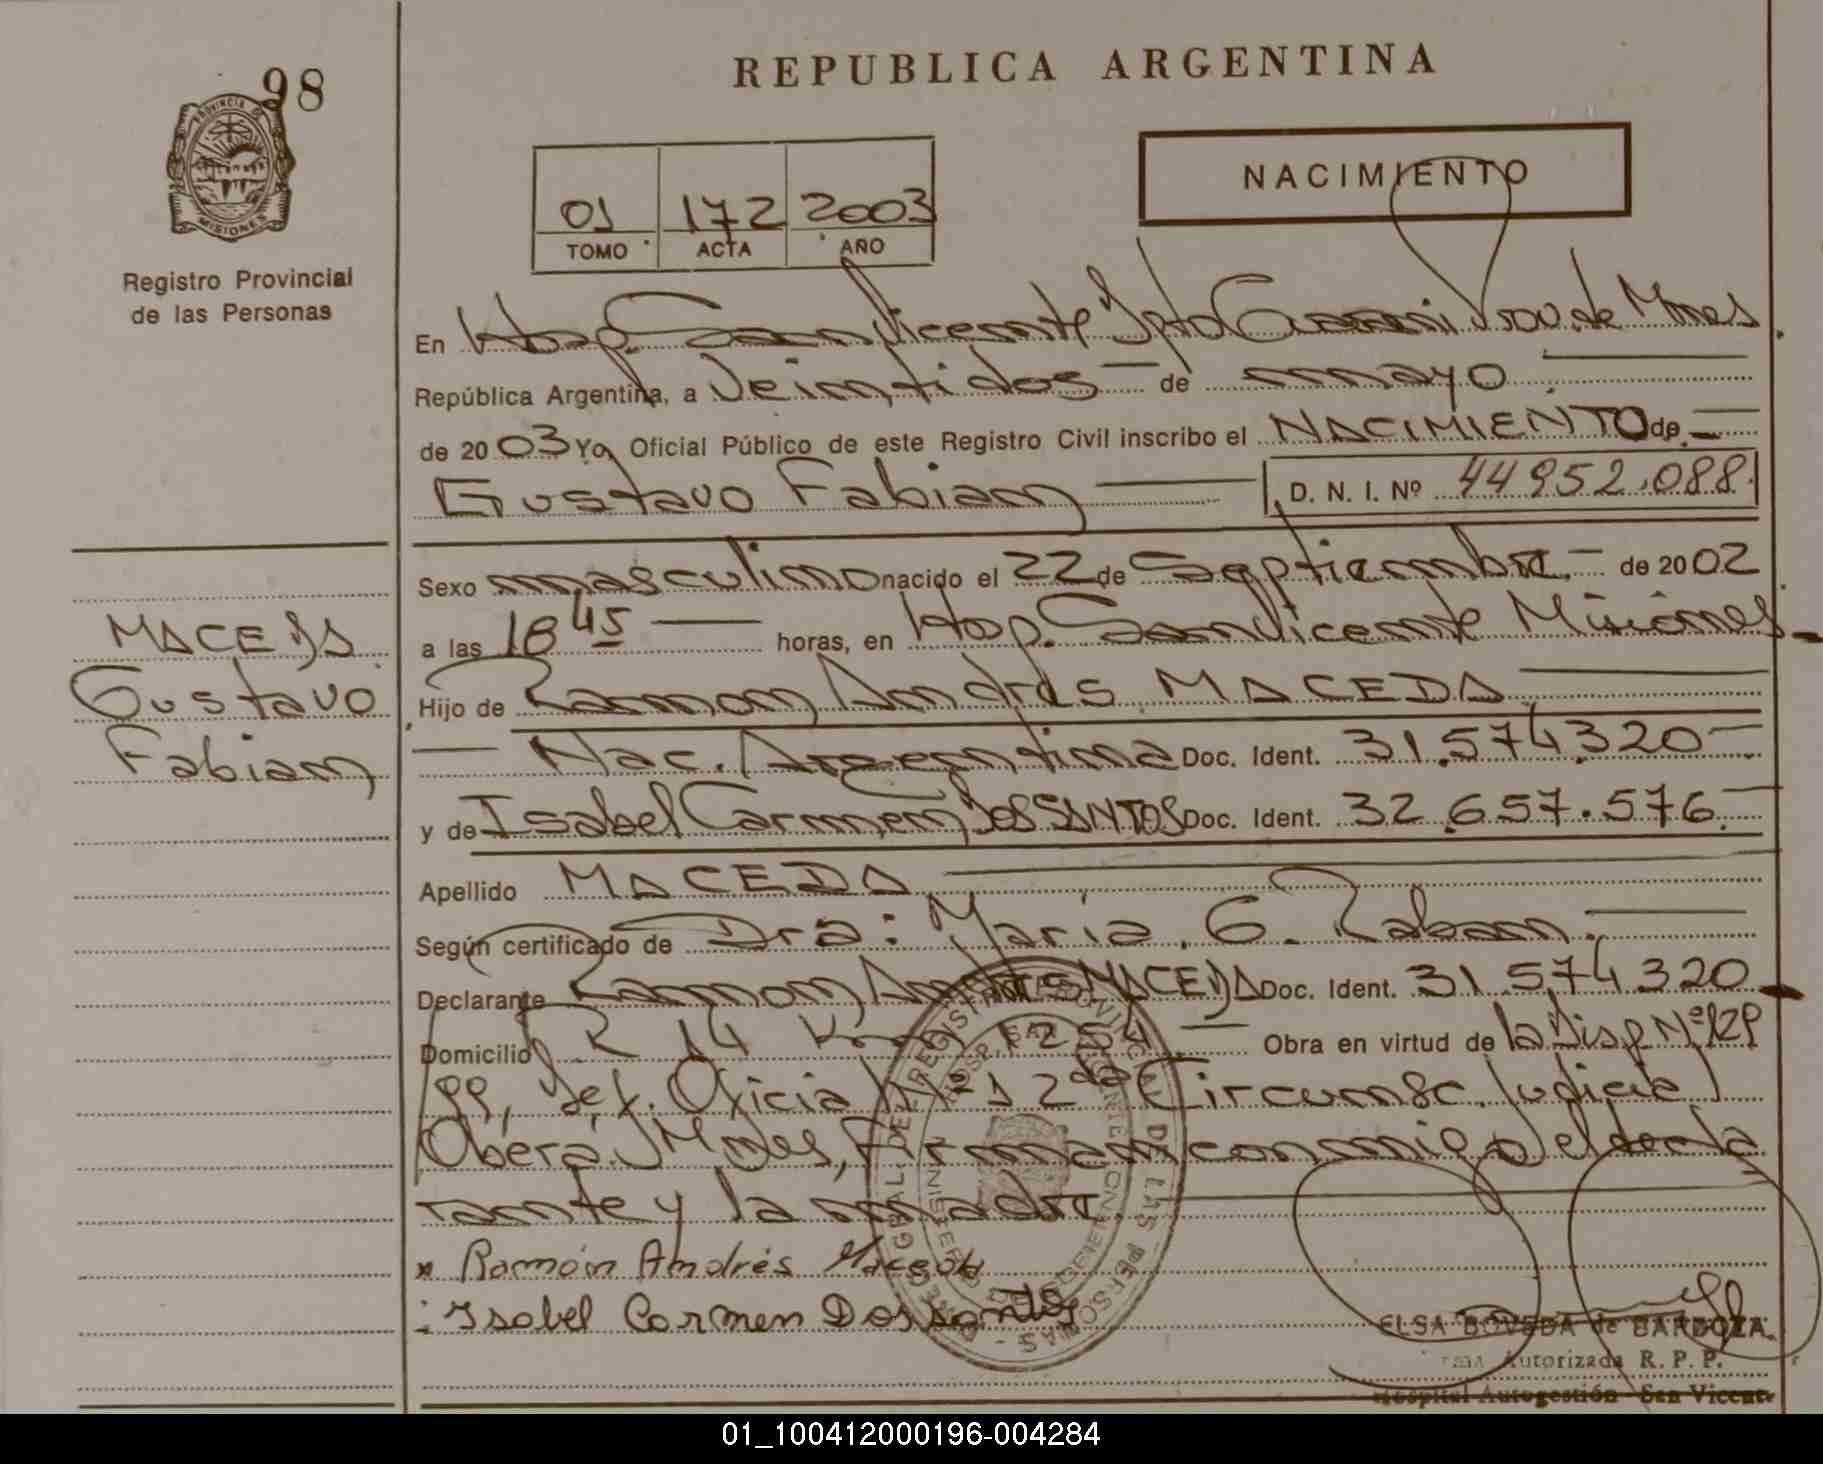 98
REPUBLICA ARGENTINA
PROVINCIA DE
MISIONES
Registro Provincial
de las Personas
NACIMIENTO
01 172 2003
TOMO ACTA AÑO
En Hosp. San Vicente Dpto Guarani Prov. de Mnes
República Argentina, a Veintidos de mayo
de 2003 Yo, Oficial Público de este Registro Civil inscribo el NACIMIENTO de
Gustavo Fabian D. N. I. Nº 44952.088
Sexo masculino nacido el 22 de Septiembre de 2002
a las 18 45 horas, en Hosp. San Vicente Misiones
MACEDA
Gustavo
Fabian
Hijo de Ramon Andrés MACEDA
Nac. Argentina Doc. Ident. 31.574.320
y de Isabel Carmen DOS SANTOS Doc. Ident. 32.657.576
Apellido MACEDA
Según certificado de Dra: María G. Raban
Declarante Ramon Andrés MACEDA Doc. Ident. 31574320
Domicilio R 14 Km 1254 Obra en virtud de la Disp Nº 129
99, Def. Oficial Nº 1 2da Circunsc. Judicial
Oberá. Mnes, Firman conmigo el decla
rante y la madre.
x Ramón Andrés Maceda
: Isabel Carmen Dos santos
ELSA BOVEDA de BARBOZA
Autorizada R. P. P.
Hospital Autogestión San Vicente
01_100412000196-004284